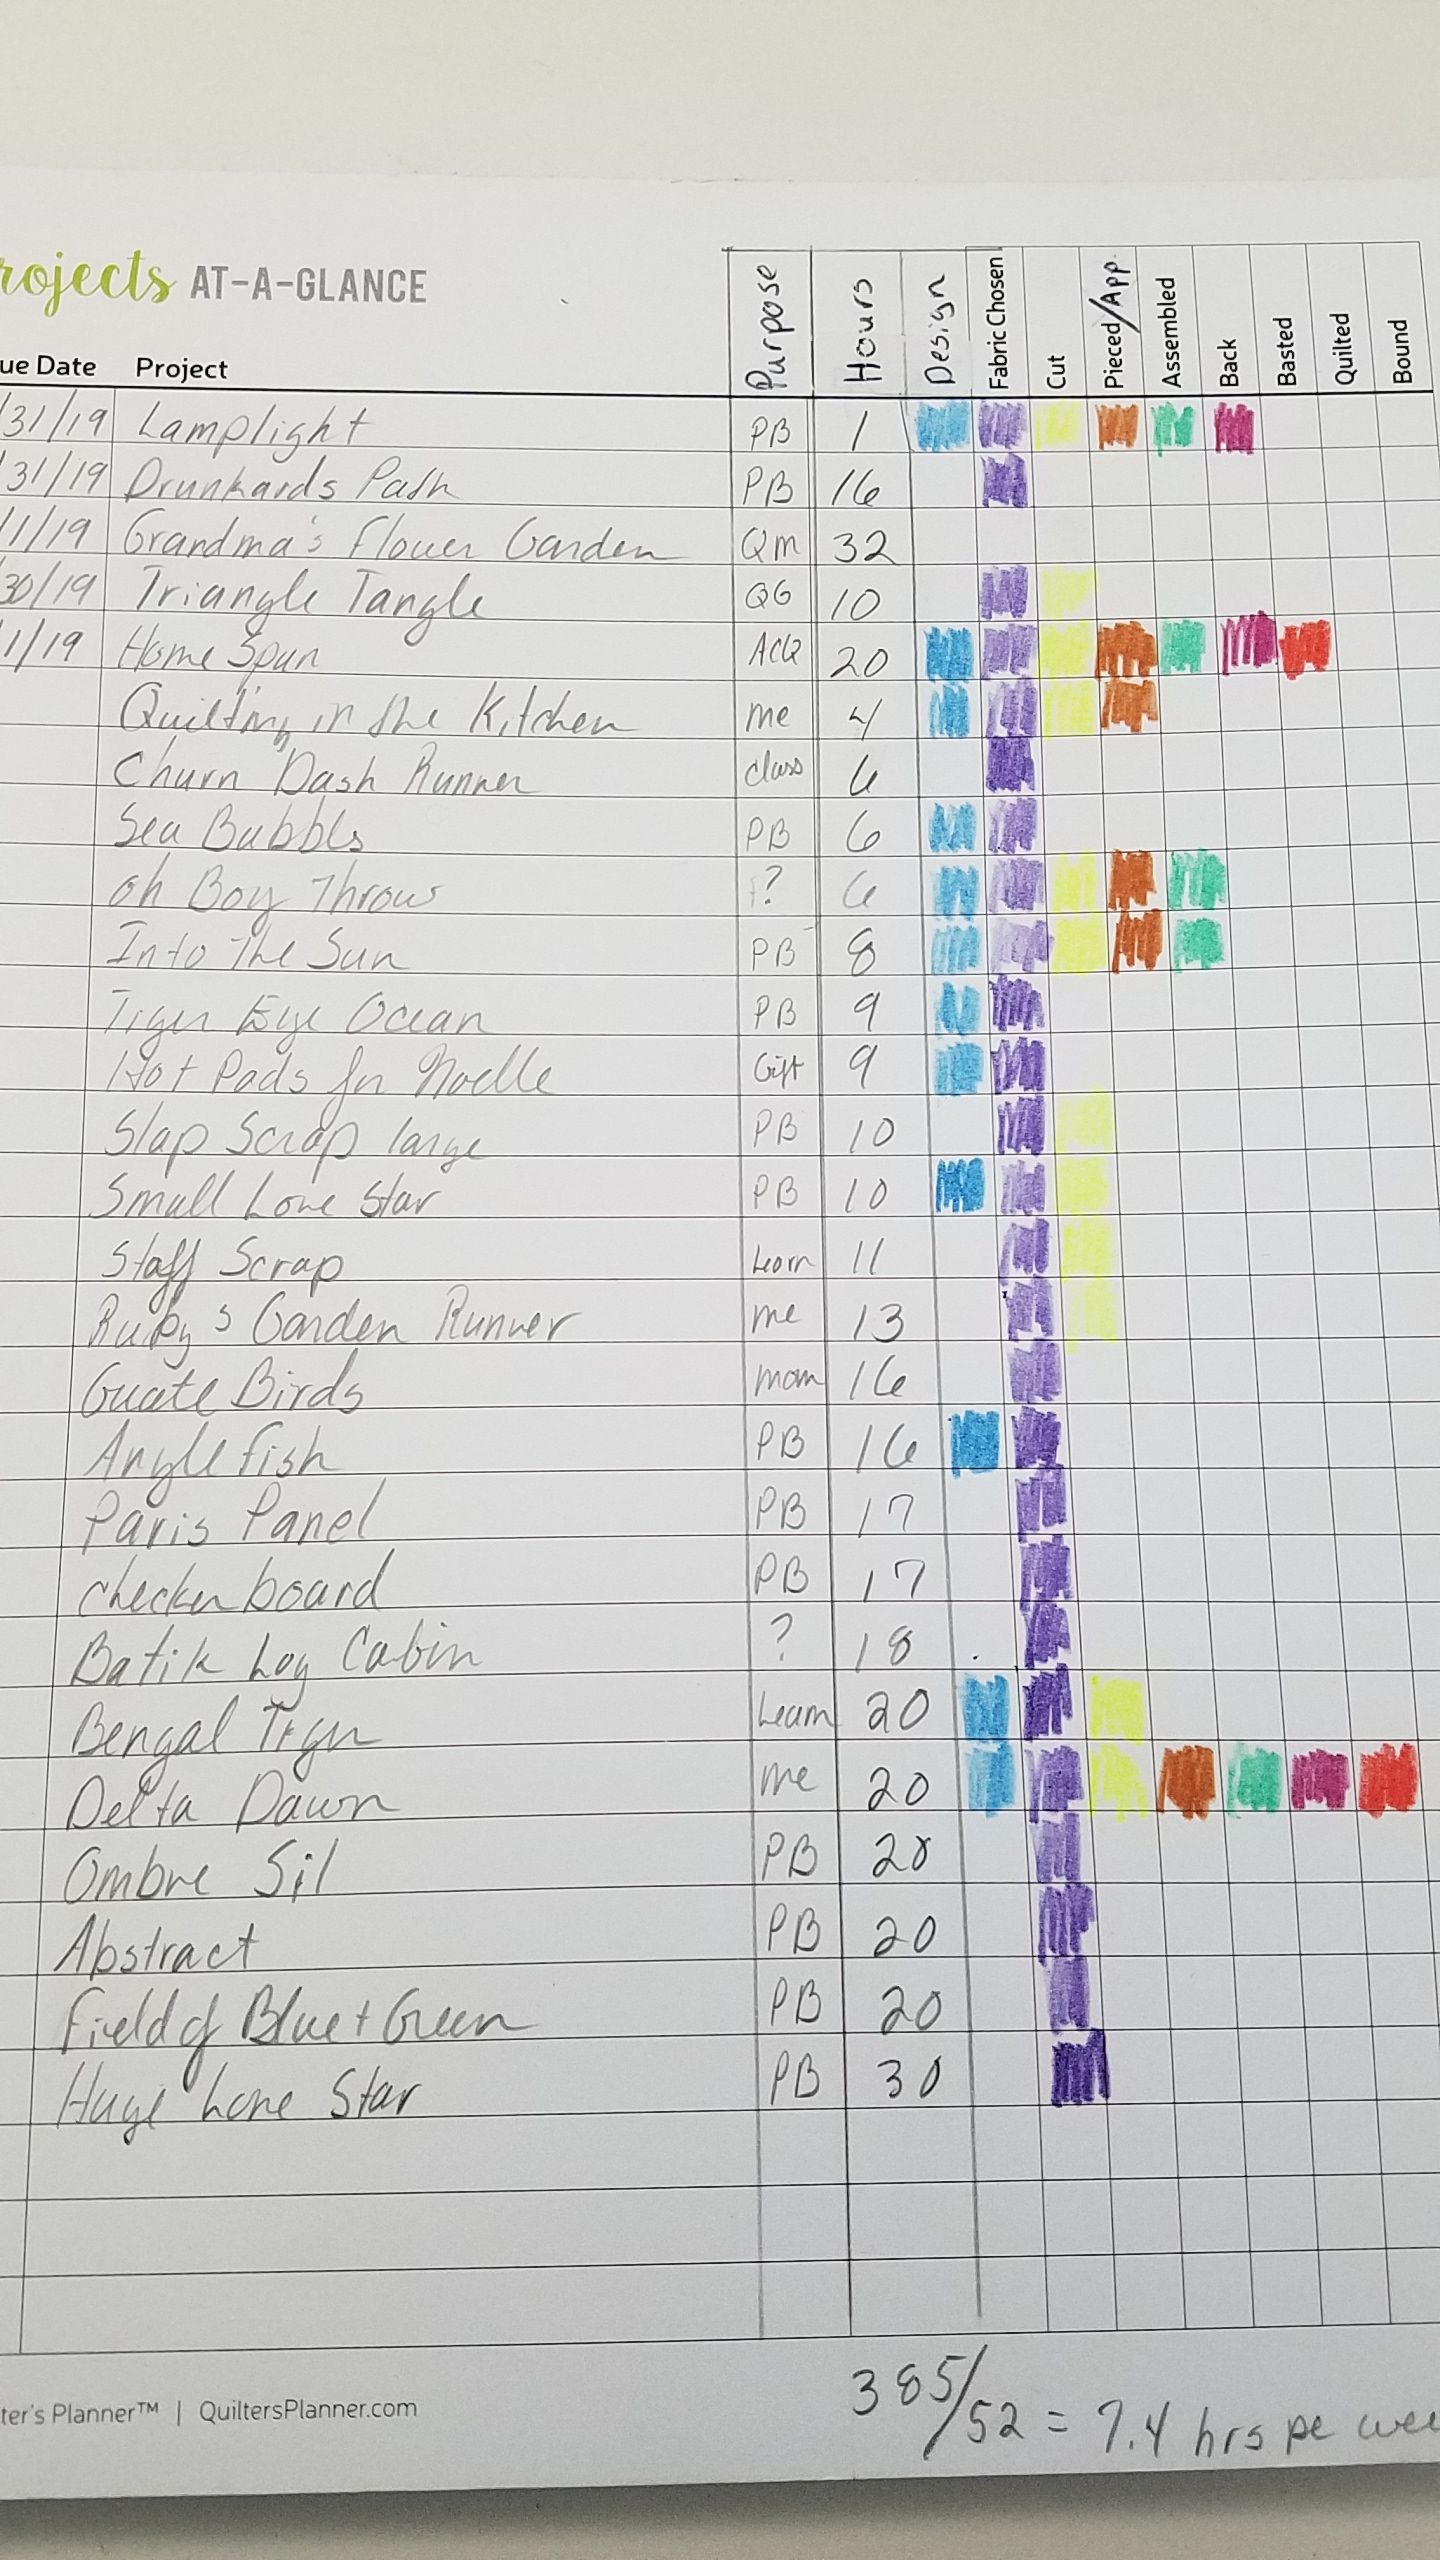 rojects AT-A-GLANCE
ue Date Project Purpose Hours Design Fabric Chosen Cut Pieced/App. Assembled Back Basted Quilted Bound
/31/19 Lamplight PB 1
/31/19 Drunkards Path PB 16
/1/19 Grandma's Flower Garden QM 32
30/19 Triangle Tangle QG 10
1/19 Home Spun ACQ 20
Quilting in the Kitchen me 4
Churn Dash Runner class 6
Sea Bubbls PB 6
Oh Boy Throws ? 6
Into The Sun PB 8
Tiger Eye Ocean PB 9
Hot Pads for Noelle Gift 9
Slap Scrap large PB 10
Small Lone Star PB 10
Staff Scrap Learn 11
Ruby's Garden Runner me 13
Guate Birds mom 16
Angle fish PB 16
Paris Panel PB 17
checkerboard PB 17
Batik Log Cabin ? 18
Bengal Tiger Learn 20
Delta Dawn me 20
Ombre Sil PB 20
Abstract PB 20
Field of Blue + Green PB 20
Huge Lone Star PB 30
385/52 = 7.4 hrs pe wee
ter's Planner™ | QuiltersPlanner.com